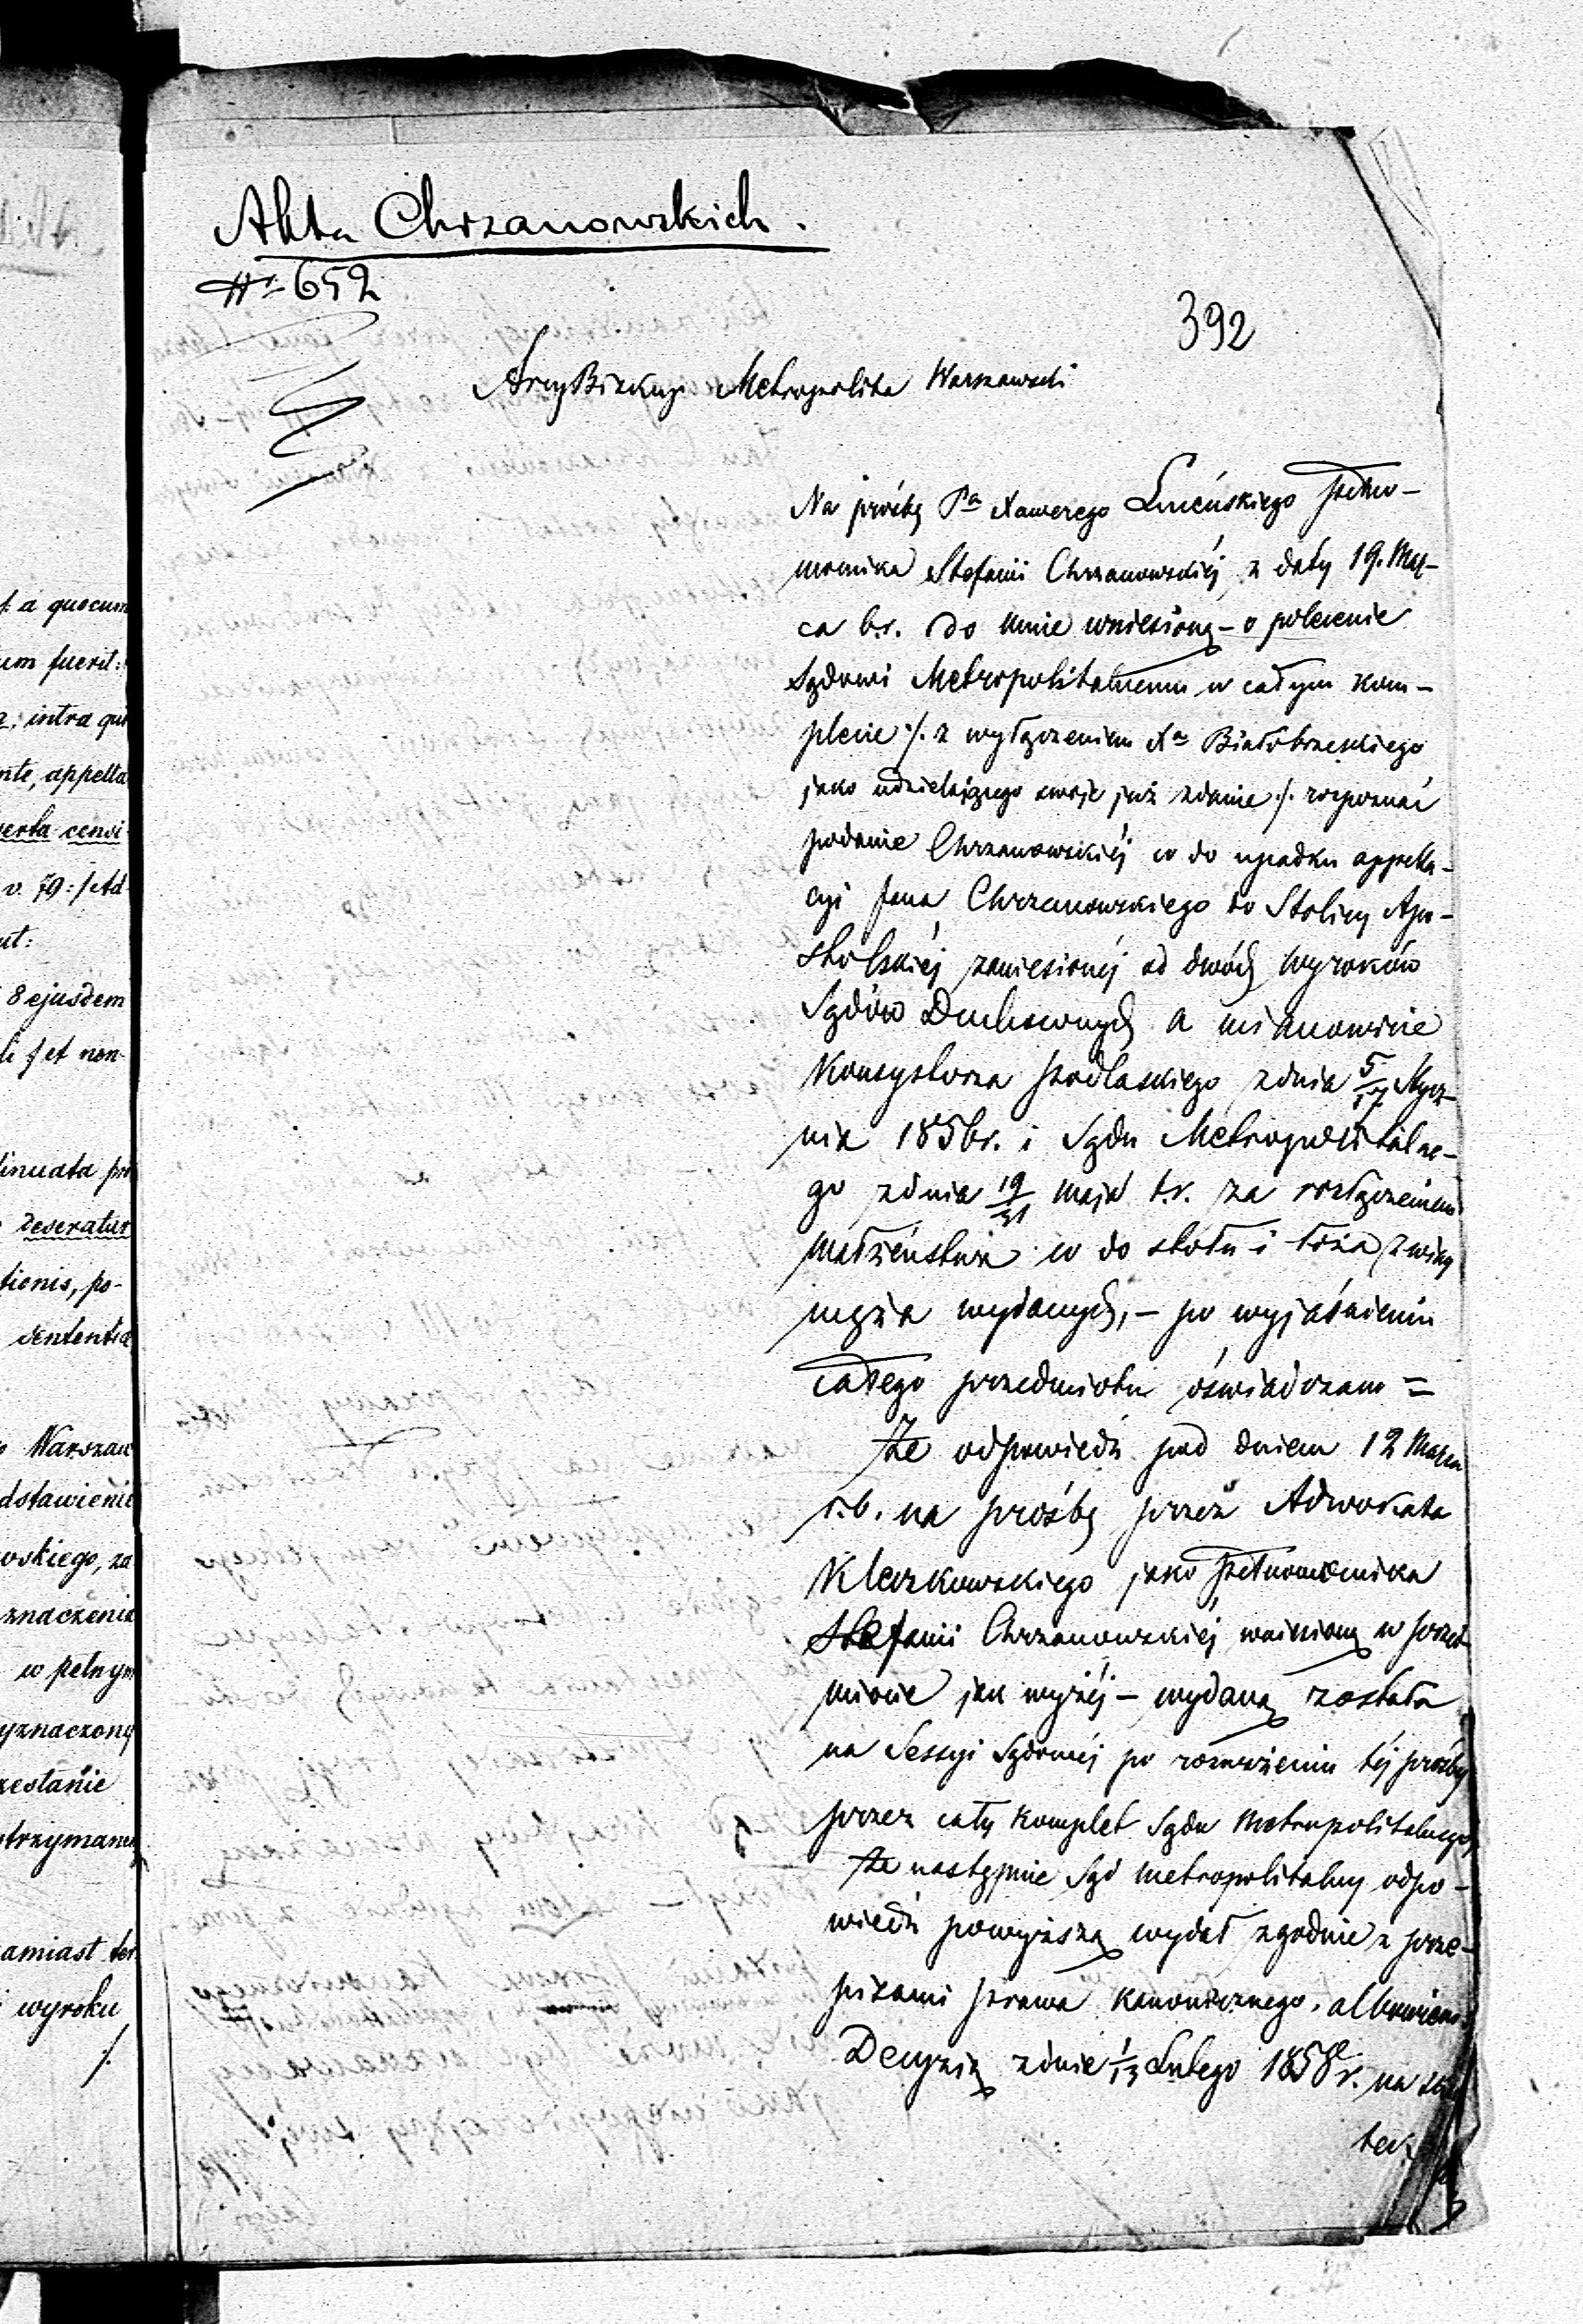 t. a quocum
um fuerit:
a, intra qui
nte, appella
verba censi
v. 79:/Ad
ut:
8 ejusdem
li / et non-
tinuata pro
deseratur
tionis, po-
sententia
Warszaw
dstawienie
wskiego, za
znaczenia
w pełnym
yznaczony
zesłanie
otrzymane
amiast ter
wyroku
/.
Akta Chrzanowskich.
Nr 652
392
ArcyBiskup Metropolita Warszawski
Na prośbę Pa Xawerego Łucińskiego pełno-
mocnika Stefanii Chrzanowskiéj z daty 19. Mar-
ca b.r. do mnie wniesioną – o polecenie
Sądowi Metropolitalnemu w całym kom-
plecie /. z wyłączeniem Xa Białobrzeskiego
jako udzielającego swoje już zdanie /. rozpoznać
podanie Chrzanowskiéj co do upadku appella-
cyi Jana Chrzanowskiego do Stolicy Apo-
stolskiéj zaniesionéj od dwóch wyroków
Sądów Duchownych a mianowicie
Konsystorza podlaskiego z dnia 5/17 Stycz-
nia 1856r. i Sądu Metropolitalne-
go z dnia 19/31 Maja t.r. za rozłączeniem
małżeństwa co do stołu i łoża z winy
męża wydanych, – po wyjaśnieniu
całego przedmiotu oświadczam =
że odpowiedź pod dniem 12 Marca
r.b. na prośbę przez Adwokata
Kleczkowskiego jako pełnomocnika
Stefanii Chrzanowskiéj wniesioną w przed-
miocie jak wyżéj – wydaną została
na Sessyi Sądowéj po rozważeniu téj prośby
przez cały komplet Sądu Metropolitalnego,
że następnie Sąd Metropolitalny odpo-
wiedź powyższą wydał zgodnie z prze-
pisami prawa kanonicznego, albowiem
Decyzią z dnia 1/13 Lutego 1858 r. na sku
tek